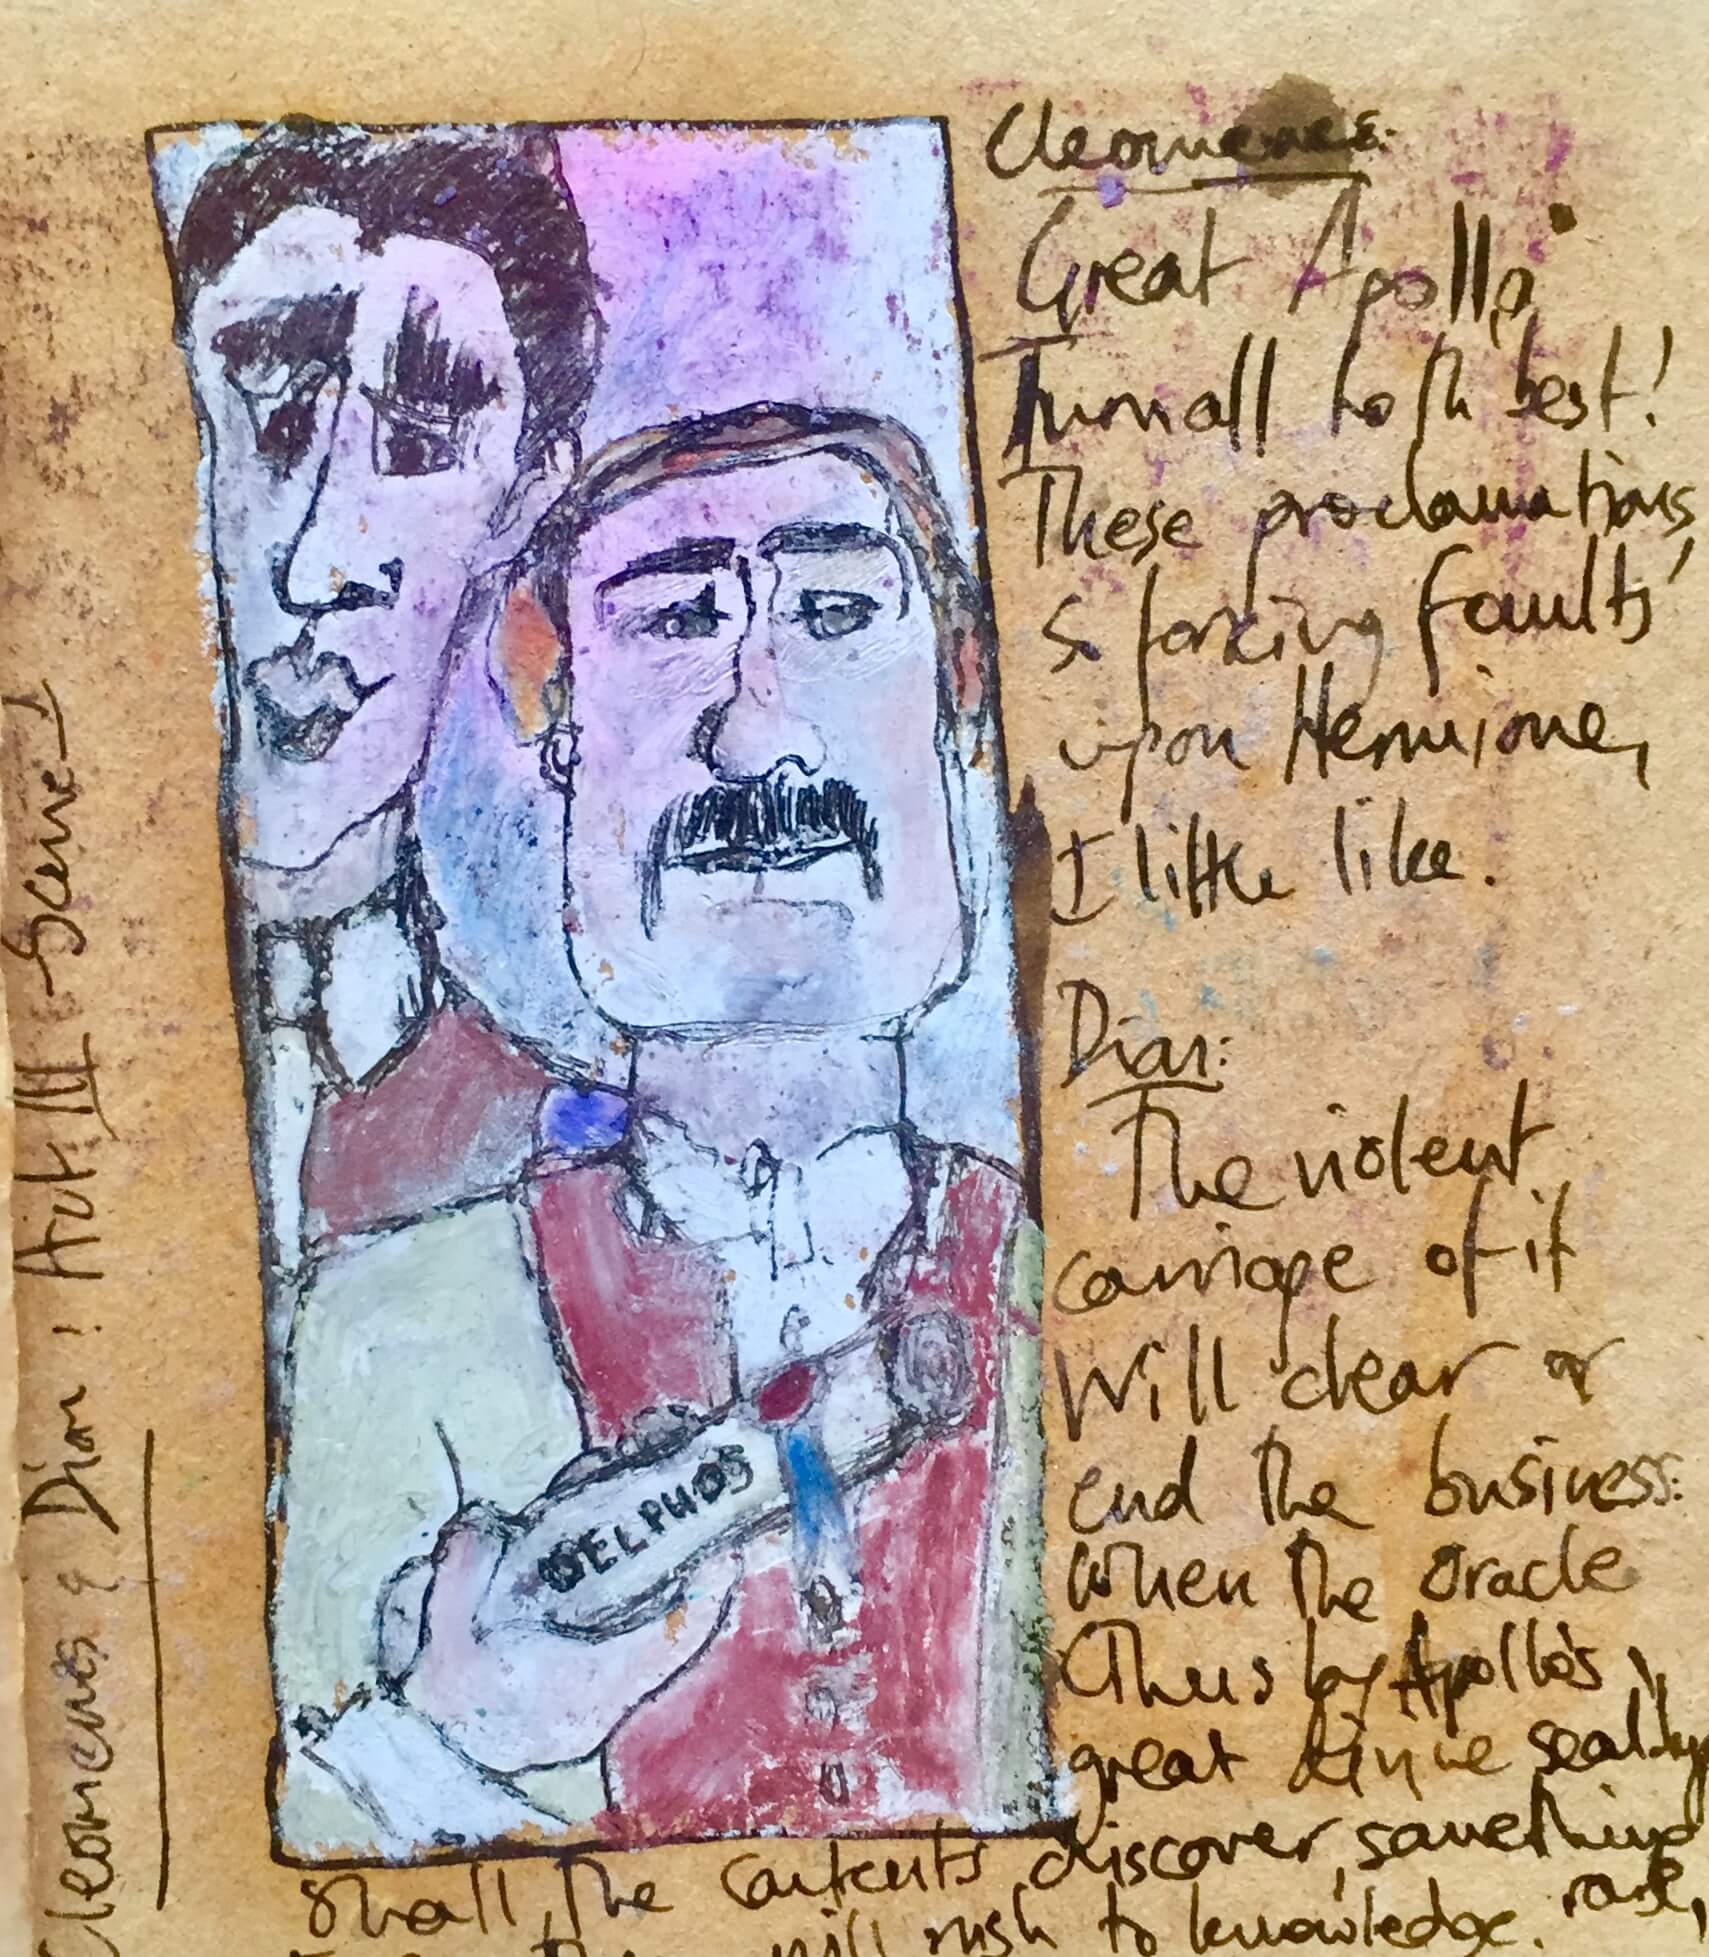 Cleomenes:
Great Apollo,
Turn all to th' best!
These proclamations,
So forcing faults
upon Hermione,
I little like.
Dion:
The violent
carriage of it
Will clear or
end the business:
When the oracle
(Thus by Apollo's
great divine seal'd up)
Shall the contents discover, something
rare,
then will rush to knowledge.
DELPHOS
Cleomenes & Dion: Act III - Scene 1